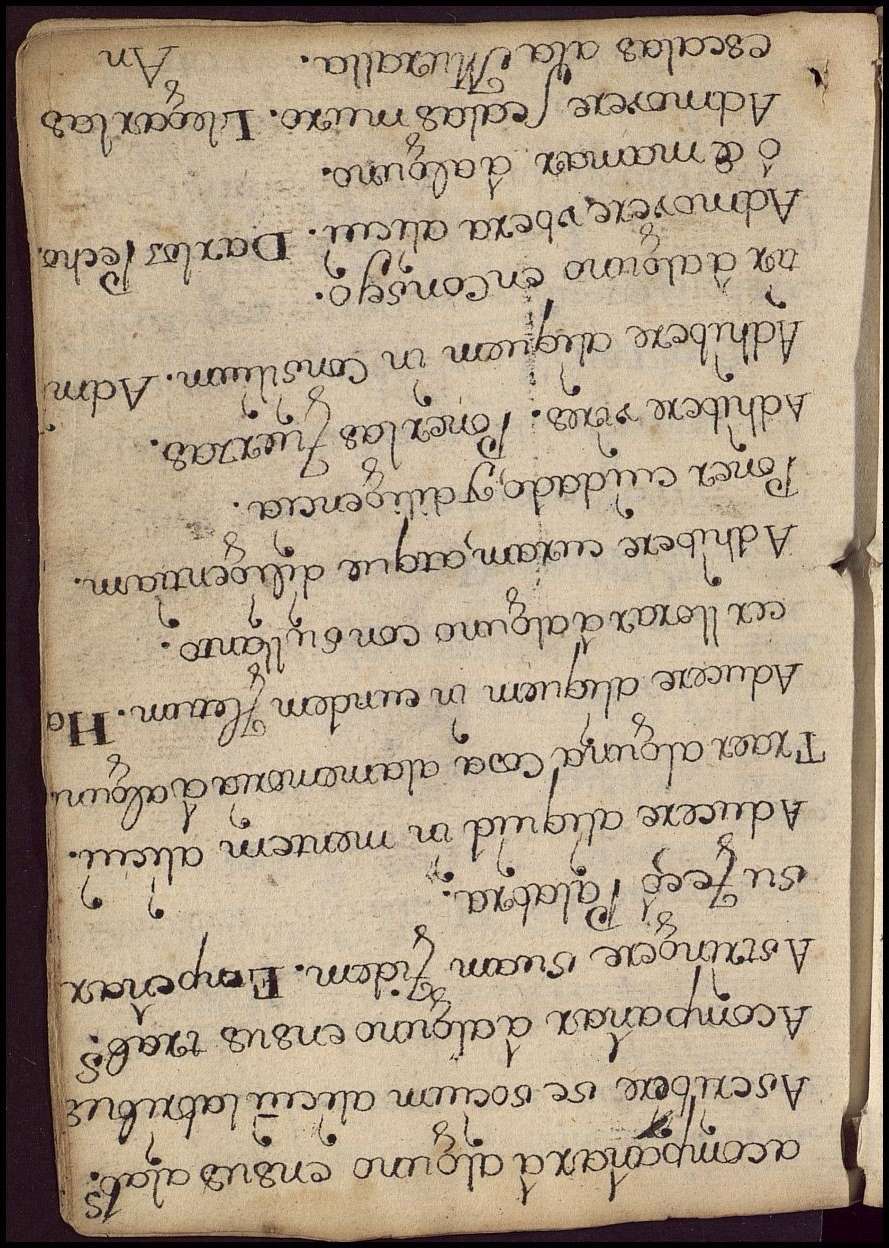 acompañar à alguno ensus alabs.
Ascribere se socium alicui laboribus
Acompañar à alguno ensus trabs.
Astringere suam fidem. Empeñar
su feeò Palabra.
Aducere aliquid in mentem alicui.
Traer alguna cosa alamemoria à algun
Aducere aliquem in eundem fletum. Ha
cer llorar à alguno con su llanto.
Adhibere curam, atque diligentiam.
Poner cuidado, y diligencia.
Adhibere vires. Poner las fuerzas.
Adhibere aliquem in Consilium. Adm
tir à alguno en Consejo.
Admovere ubera alicui. Dar los Pecho.
ò de mamar à alguno.
Admovere scalas muro. Llegar las
escalas ala Muralla.
An